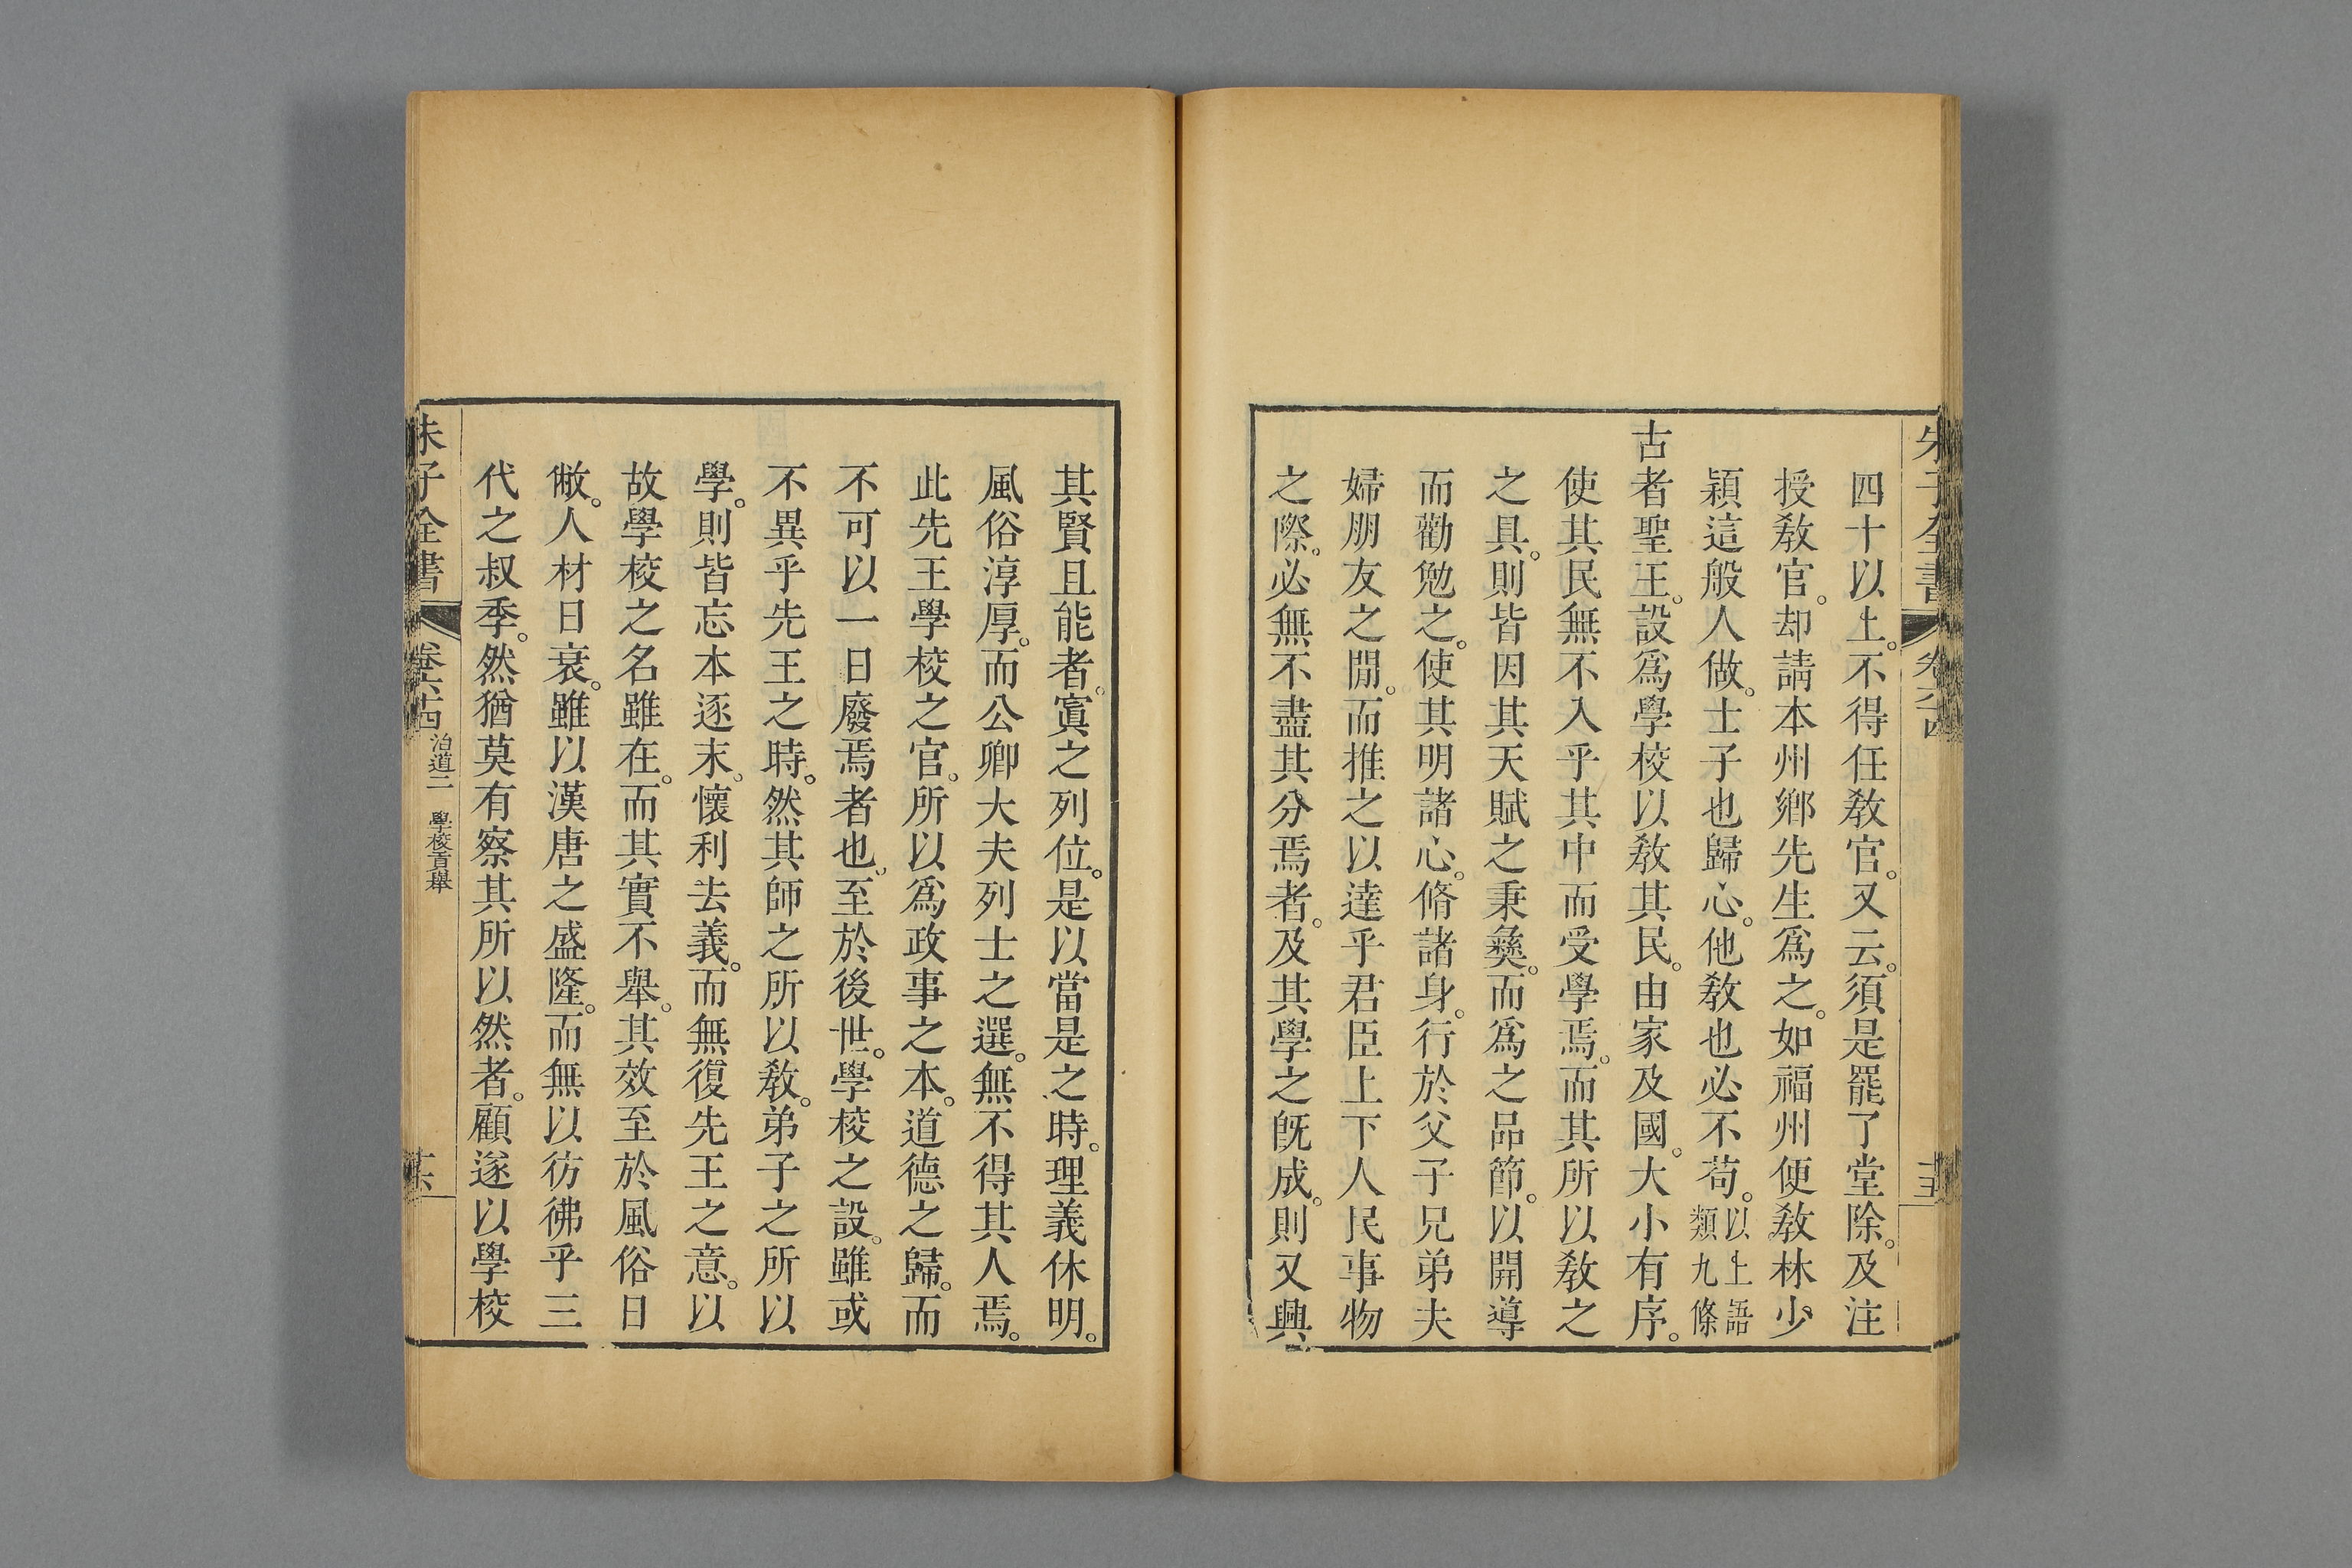 朱子全書 卷六十四 十五
四十以上。不得任敎官。又云。須是罷了堂除。及注
授敎官。却請本州鄉先生爲之。如福州便敎林少
穎這般人做。士子也歸心。他敎也必不苟。以上語類九條
古者聖王。設爲學校以敎其民。由家及國。大小有序。
使其民無不入乎其中而受學焉。而其所以敎之
之具。則皆因其天賦之秉彞。而爲之品節。以開導
而勸勉之。使其明諸心。脩諸身。行於父子兄弟夫
婦朋友之閒。而推之以達乎君臣上下人民事物
之際。必無不盡其分焉者。及其學之旣成。則又興
其賢且能者。寘之列位。是以當是之時。理義休明。
風俗淳厚。而公卿大夫列士之選。無不得其人焉。
此先王學校之官。所以爲政事之本。道德之歸。而
不可以一日廢焉者也。至於後世。學校之設。雖或
不異乎先王之時。然其師之所以敎。弟子之所以
學。則皆忘本逐末。懷利去義。而無復先王之意。以
故學校之名雖在。而其實不舉。其效至於風俗日
敝。人材日衰。雖以漢唐之盛隆。而無以彷彿乎三
代之叔季。然猶莫有察其所以然者。顧遂以學校
朱子全書 卷六十四 治道二 學校貢舉 十六